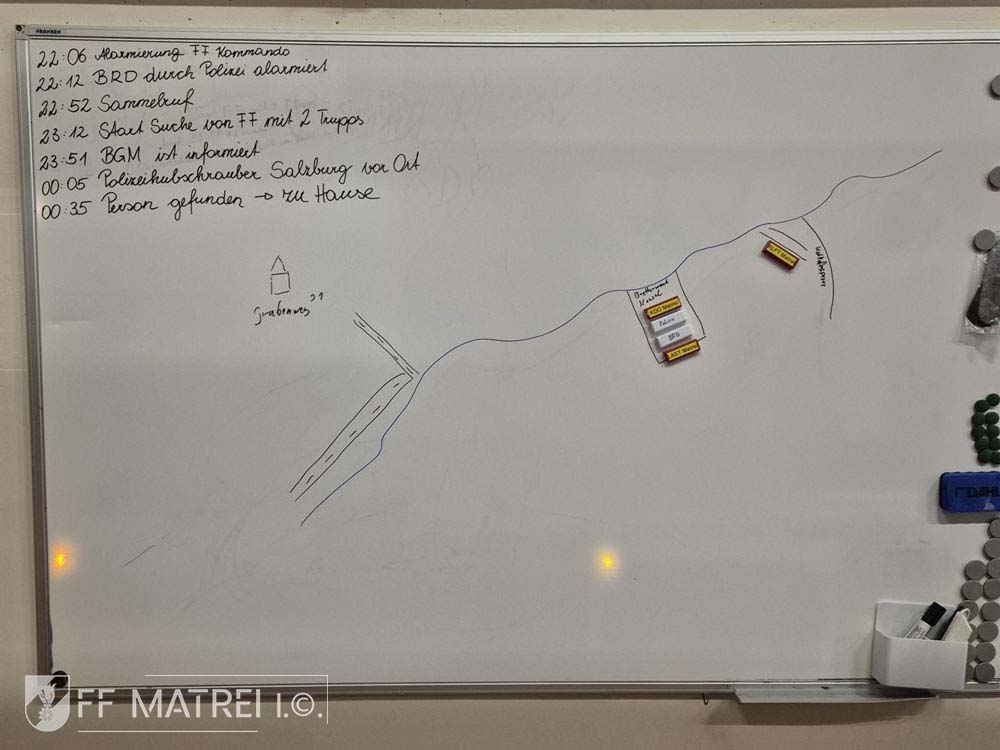 FRANKEN
22:06 Alarmierung FF Kommando
22:12 BRD durch Polizei alarmiert
22:52 Sammelruf
23:12 Start Suche von FF mit 2 Trupps
23:51 BGM ist informiert
00:05 Polizeihubschrauber Salzburg vor Ort
00:35 Person gefunden → zu Hause
KDO Matrei
Polizei
BRD
LAST Matrei
DAHLE
FF MATREI I.O.